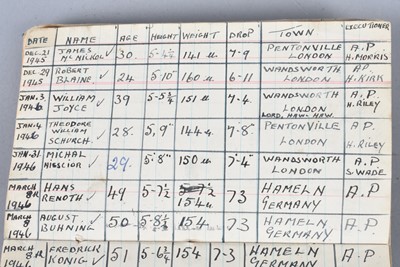 DATE NAME AGE HEIGHT WEIGHT DROP TOWN EXECUTIONER
DEC. 21 1945 JAMES McNICKOL ✓ 30. 5-4¼ 141 lbs 7-9 PENTONVILLE LONDON A.P H.MORRIS
DEC. 29 1945 ROBERT BLAINE. ✓ 24 5-10 160 6-11 WANDSWORTH LONDON A.P H.KIRK
JAN. 3 1946 WILLIAM JOYCE ✓ 39 5-5¾ 151 7-4 WANDSWORTH LONDON LORD. HAW-HAW. A.P H.RILEY
JAN. 4 1946 THEODORE WILLIAM SCHURCH. ✓ 28. 5, 9" 144 7-8" PENTONVILLE LONDON A.P H.RILEY
JAN. 31 1946 MICHAL NIESCIOR ✓ 29. 5-8" 150 7-4" WANDSWORTH LONDON A.P S.WADE
MARCH 8TH 1946 HANS RENOTH ✓ 49 5-7½ 154 73 HAMELN GERMANY A.P
MARCH 8 1946 AUGUST. BUHNING ✓ 50 5-8½ 154 73 HAMELN GERMANY A.P
MARCH 8TH 1946 FREDRICK KONIG ✓ 51 5-6¾ 154 7-3 HAMELN GERMANY A.P